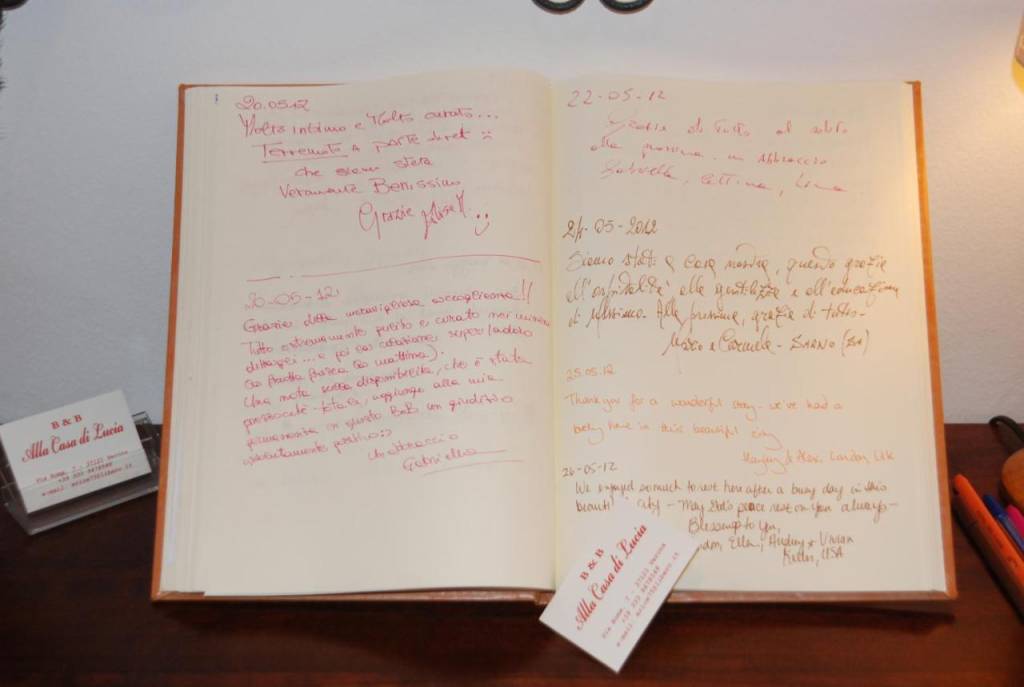 20.05.12
Molto intimo e Molto curato...
Terremoto a parte direi :)
che siamo stera
Veramente Benissimo
Grazie :)
20-05-12
Grazie della meravigliosa accoglienza!!
Tutto estremamente pulito e curato nei minimi
dettagli... e poi la colazione super (adoro
la frutta fresca la mattina).
Una nota sulla disponibilità, che è stata
pressoché totale, aggiungo alla mia
permanenza in questo B&B un giudizio
assolutamente positivo :)
Un abbraccio
Gabriella
22-05-12
Grazie di tutto al solito
alla prossima. un abbraccio
Gabriella, Cettina,
24-05-2012
Siamo stati a casa nostra, quando grazie
all'ospitalità alla gentilezza e all'educazione
di Massimo. Alla prossima, grazie di tutto-
Mario e Carmela - SIANO (SA)
25.05.12
Thank you for a wonderful stay - we've had a
lovely time in this beautiful city
& Alex. London, UK
26-05-12
We enjoyed so much to rest here after a busy day in this
beautiful city - May God's peace rest on you always -
Blessings to you,
Ellen, Audrey & Vivian
Keller, USA
B & B
Alla Casa di Lucia
Via Roma, 7 - 37121 Verona
B & B
Alla Casa di Lucia
Via Roma, 7 - 37121 Verona